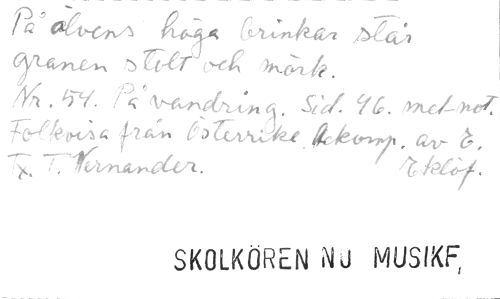 På älvens höga brinkar står
granen stolt och mörk.
Nr. 54. På vandring. Sid. 46. met-not.
Folkvisa från Österrike. Ackomp. av E.
Tx. T. Nernander. Eklöf.
SKOLKÖREN NU MUSIKF,